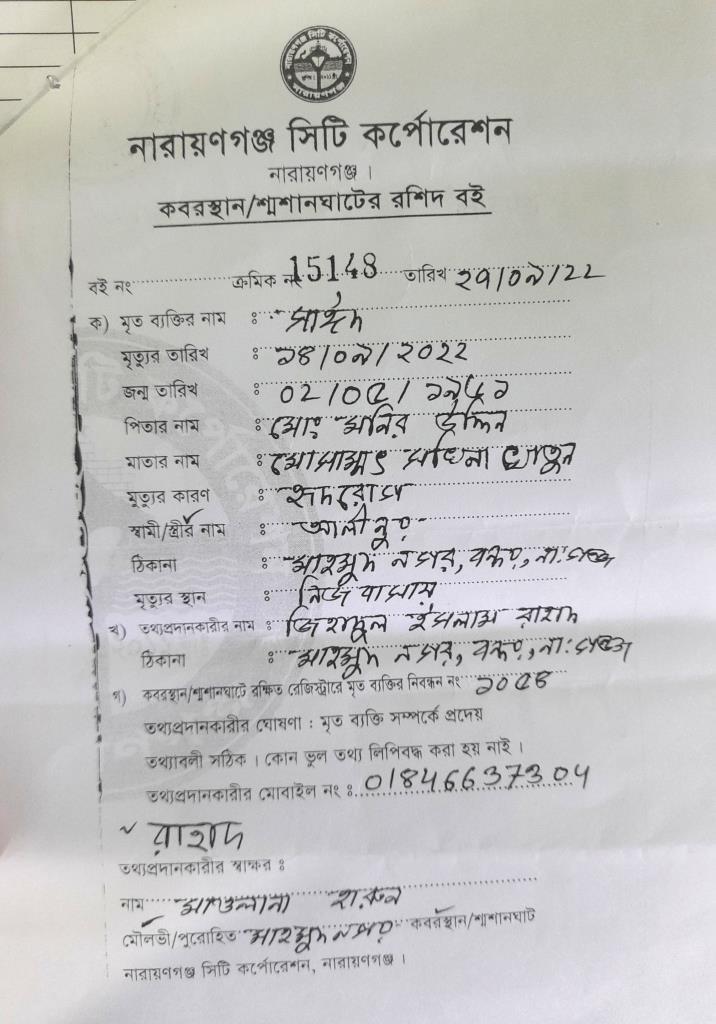 নারায়ণগঞ্জ সিটি কর্পোরেশন
নারায়ণগঞ্জ ।
কবরস্থান/শ্মশানঘাটের রশিদ বই
বই নং ক্রমিক নং 15148 তারিখ ২৭/০৯/২২
ক) মৃত ব্যক্তির নাম ঃ সাঈদ
মৃত্যুর তারিখ ঃ ১৪/০৯/২০২২
জন্ম তারিখ ঃ ০২/০৫/১৯৫১
পিতার নাম ঃ মোঃ মনির উদ্দিন
মাতার নাম ঃ মোসাম্মৎ সখিনা খাতুন
মৃত্যুর কারণ ঃ হৃদরোগ
স্বামী/স্ত্রীর নাম ঃ আলীনুর
ঠিকানা ঃ মাহমুদ নগর, বন্দর, না:গঞ্জ
মৃত্যুর স্থান ঃ নিজ বাসায়
খ) তথ্যপ্রদানকারীর নাম ঃ জিহাদুল ইসলাম রাহাদ
ঠিকানা ঃ মাহমুদ নগর, বন্দর, না:গঞ্জ
গ) কবরস্থান/শ্মশানঘাটে রক্ষিত রেজিস্ট্রারে মৃত ব্যক্তির নিবন্ধন নং ১০৫৪
তথ্যপ্রদানকারীর ঘোষণা : মৃত ব্যক্তি সম্পর্কে প্রদেয়
তথ্যাবলী সঠিক । কোন ভুল তথ্য লিপিবদ্ধ করা হয় নাই ।
তথ্যপ্রদানকারীর মোবাইল নং ঃ 01846637304
রাহাদ
তথ্যপ্রদানকারীর স্বাক্ষর ঃ
নাম মাওলানা হারুন
মৌলভী/পুরোহিত মাহমুদনগর কবরস্থান/শ্মশানঘাট
নারায়ণগঞ্জ সিটি কর্পোরেশন, নারায়ণগঞ্জ ।